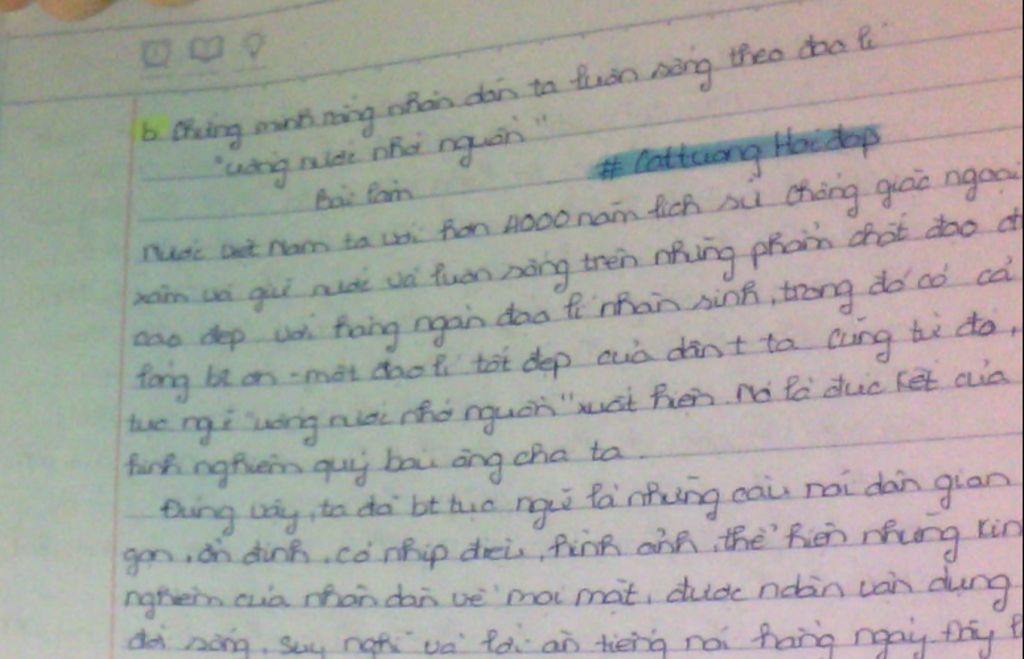 b. Chứng minh rằng nhân dân ta luôn sống theo đạo lí
"uống nước nhớ nguồn"
# Cattuong Hoidap
Bài làm
Nước việt Nam ta với hơn 4000 năm lịch sử chống giặc ngoại
xâm và giữ nước và luôn sống trên những phẩm chất đạo đ
cao đẹp với hàng ngàn đạo lí nhân sinh, trong đó có cả
lòng bt ơn - một đạo lí tốt đẹp của dân t ta cũng từ đó,
tục ngữ "uống nước nhớ nguồn" xuất hiện. Nó là đúc kết của
kinh nghiệm quý báu ông cha ta.
Đúng vậy, ta đã bt tục ngữ là những câu nói dân gian
gọn, ổn định, có nhịp điệu, hình ảnh, thể hiện những kin
nghiệm của nhân dân về mọi mặt, được ndân vận dụng
đời sống, suy nghĩ và lời ăn tiếng nói hàng ngày.